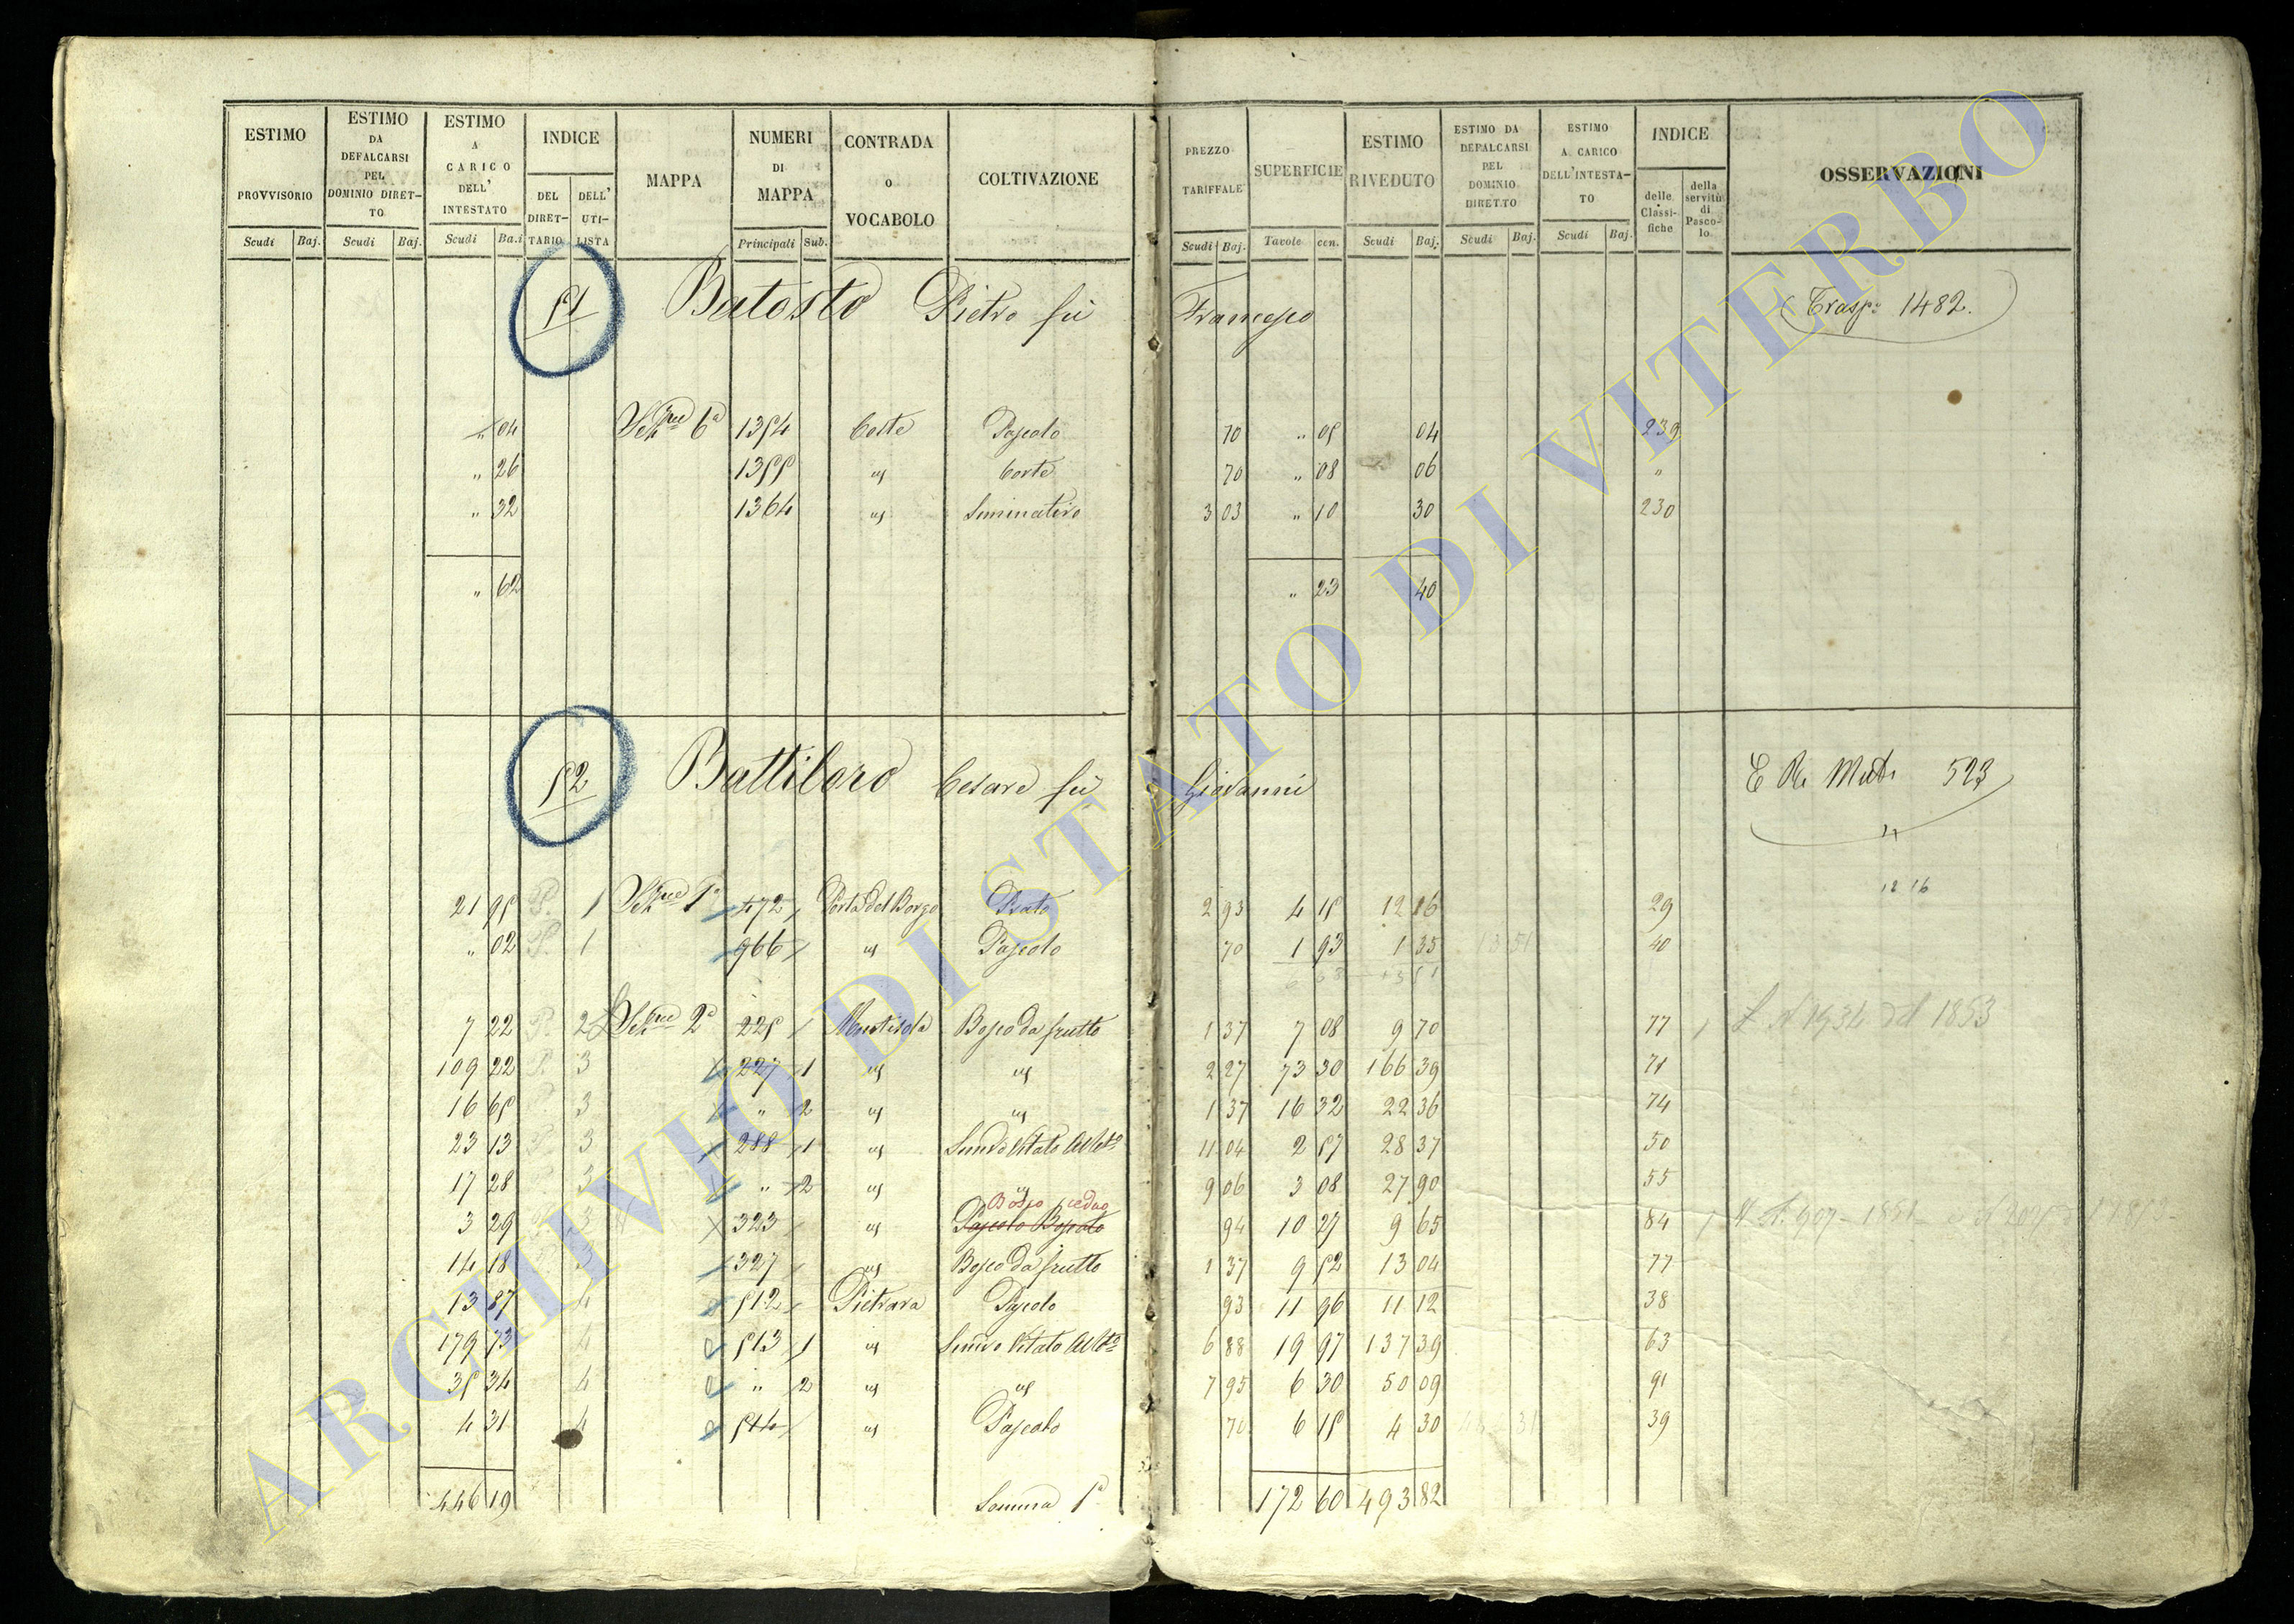 ESTIMO PROVVISORIO Scudi Baj.
ESTIMO DA DEFALCARSI PEL DOMINIO DIRETTO Scudi Baj.
ESTIMO A CARICO DELL' INTESTATO Scudi Ba.i
INDICE DEL DIRETTARIO DELL' UTILISTA
MAPPA
NUMERI DI MAPPA Principali Sub.
CONTRADA O VOCABOLO
COLTIVAZIONE
PREZZO TARIFFALE Scudi Baj.
SUPERFICIE Tavole cen.
ESTIMO RIVEDUTO Scudi Baj.
ESTIMO DA DEFALCARSI PEL DOMINIO DIRETTO Scudi Baj.
ESTIMO A CARICO DELL'INTESTATO Scudi Baj.
INDICE delle Classifiche della servitù di Pascolo
OSSERVAZIONI
51 Batosto Pietro fù Francesco 1482.
" 04 6a 1354 Coste Pascolo 70 " 05 04 239
" 26 1355 " Corte 70 " 08 06 "
" 32 1364 " Siminativo 3 03 " 10 30 230
" 62 " 23 40
52 Battiloro Cesare fù Giovanni 523
12 16
21 95 P. 1 1a 472 Porta del Borgo Prato 2 93 4 15 12 16 29
" 02 P. 1 966 " Pascolo 70 1 93 1 35 40
7 22 P. 2 2a 225 Bosco da frutto 1 37 7 08 9 70 77
109 22 P. 3 227 1 " " 2 27 73 30 166 39 71
16 65 3 " 2 " " 1 37 16 32 22 36 74
23 13 3 288 1 " Vitato 11 04 2 57 28 37 50
17 28 3 " 2 " " 9 06 3 08 27 90 55
Bosco ceduo
3 29 3 323 " Pascolo Boscato 94 10 27 9 65 84
14 18 3 327 " Bosco da frutto 1 37 9 52 13 04 77
13 87 4 512 Pietrara Pascolo 93 11 96 11 12 38
179 73 4 513 1 " Vitato 6 88 19 97 137 39 63
35 34 4 " 2 " " 7 95 6 30 50 09 91
4 31 4 514 " Pascolo 70 6 15 4 30 39
446 19 Somma 1a 172 60 493 82
ARCHIVIO DI STATO DI VITERBO